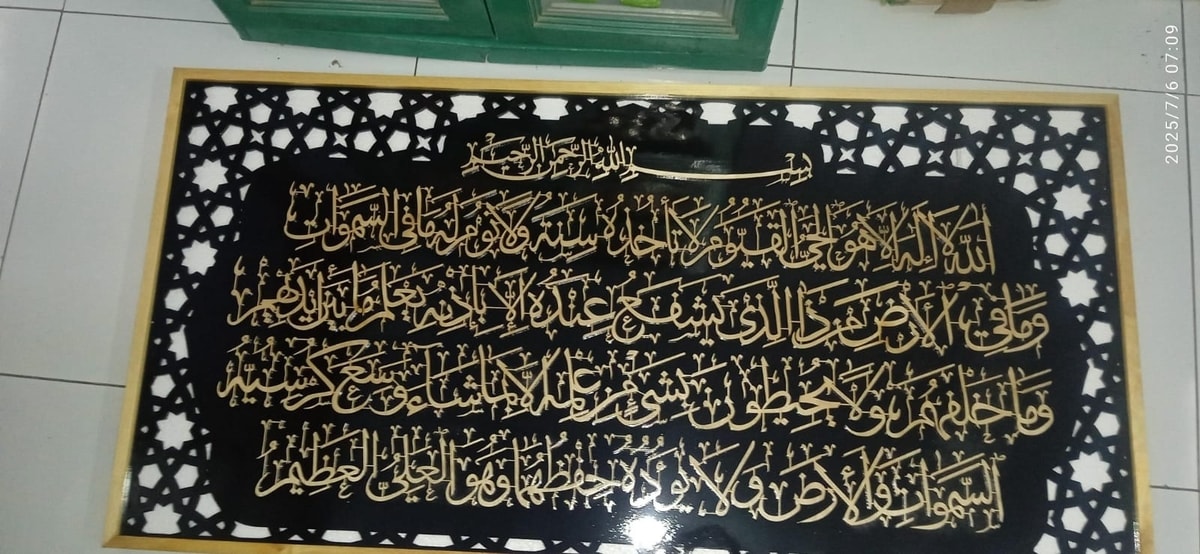 بِسْمِ اللهِ الرَّحْمٰنِ الرَّحِيْمِ
اَللهُ لَا اِلٰهَ اِلَّا هُوَ الْحَيُّ الْقَيُّوْمُ لَا تَأْخُذُهُ سِنَةٌ وَلَا نَوْمٌ لَهُ مَا فِي السَّمٰوَاتِ
وَمَا فِي الْأَرْضِ مَنْ ذَا الَّذِي يَشْفَعُ عِنْدَهُ إِلَّا بِإِذْنِهِ يَعْلَمُ مَا بَيْنَ أَيْدِيْهِمْ
وَمَا خَلْفَهُمْ وَلَا يُحِيْطُوْنَ بِشَيْءٍ مِنْ عِلْمِهِ إِلَّا بِمَا شَاءَ وَسِعَ كُرْسِيُّهُ
السَّمٰوَاتِ وَالْأَرْضَ وَلَا يَئُوْدُهُ حِفْظُهُمَا وَهُوَ الْعَلِيُّ الْعَظِيْمُ
2025/7/6 07:09